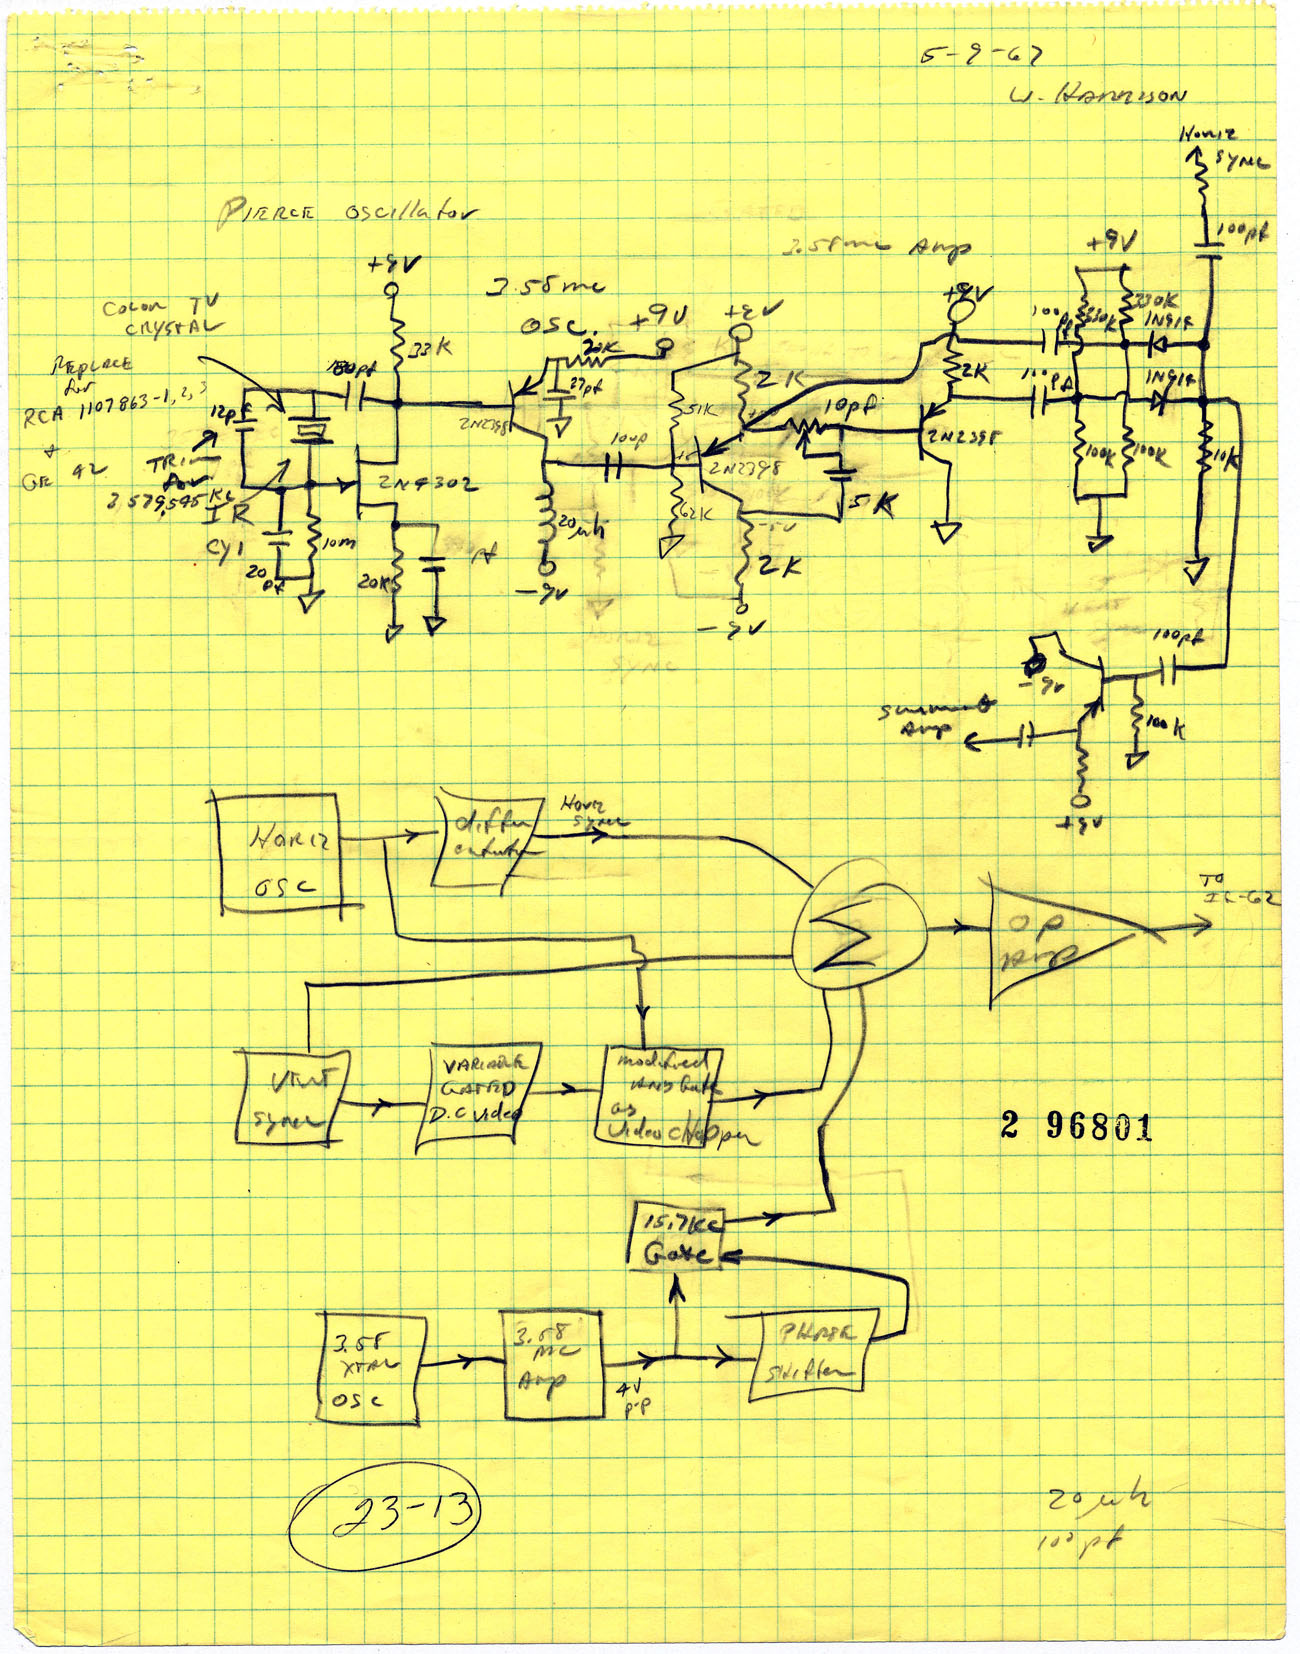 5-9-67
W. HARRISON
HORIZ
SYNC
100pf
PIERCE OSCILLATOR
+9V
3.58mc
OSC.
+9V
+9V
3.58mc Amp
+9V
+9V
COLOR TV
CRYSTAL
REPLACE
for
RCA 1107863-1,2,3
+
GE 42
33K
20K
27pf
2K
2K
330K
330K
1N914
1N914
100pf
100pf
12pf
2N2398
51K
10pf
2N2398
TRIM
for
3,579,545 KC
2N4302
100p
2N2398
100K
100K
10K
5K
IR
CY1
10m
20
pf
20K
20µh
62K
2K
-9V
-9V
HORIZ
SYNC
100pf
-9V
100K
Amp
+9V
HORIZ
OSC
differ
entiator
Horiz
Sync
Σ
OP
Amp
TO
VERT
Sync
VARIABLE
GATED
D.C Video
modified
AND Gate
as
Video CHOPper
2 96801
15.7KC
Gate
3.58
XTAL
OSC
3.58
MC
Amp
4V
P-P
PHASE
Shifter
23-13
20µh
100pf